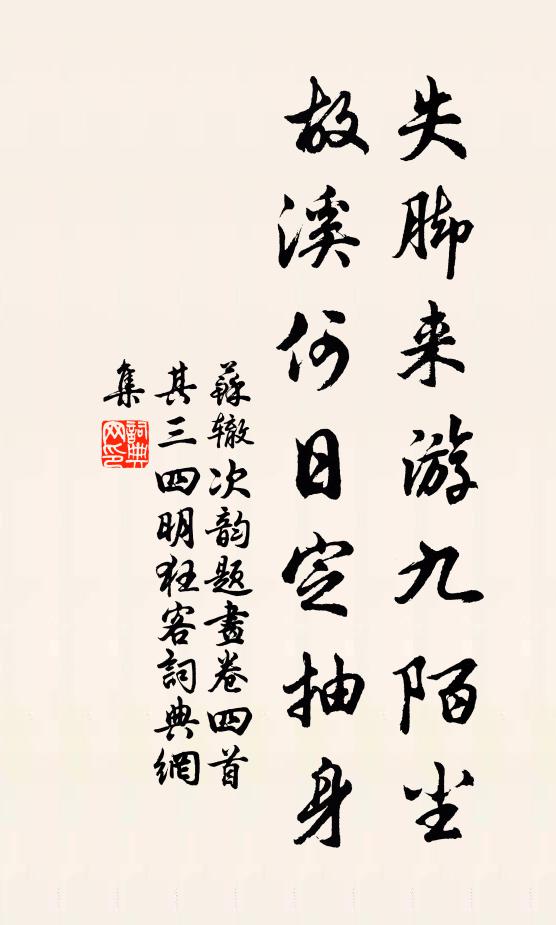 失脚来游九陌尘
故溪何日定抽身
蘇辙次韵题畫卷四首
其三四明狂客詞典網
集
詞典网印